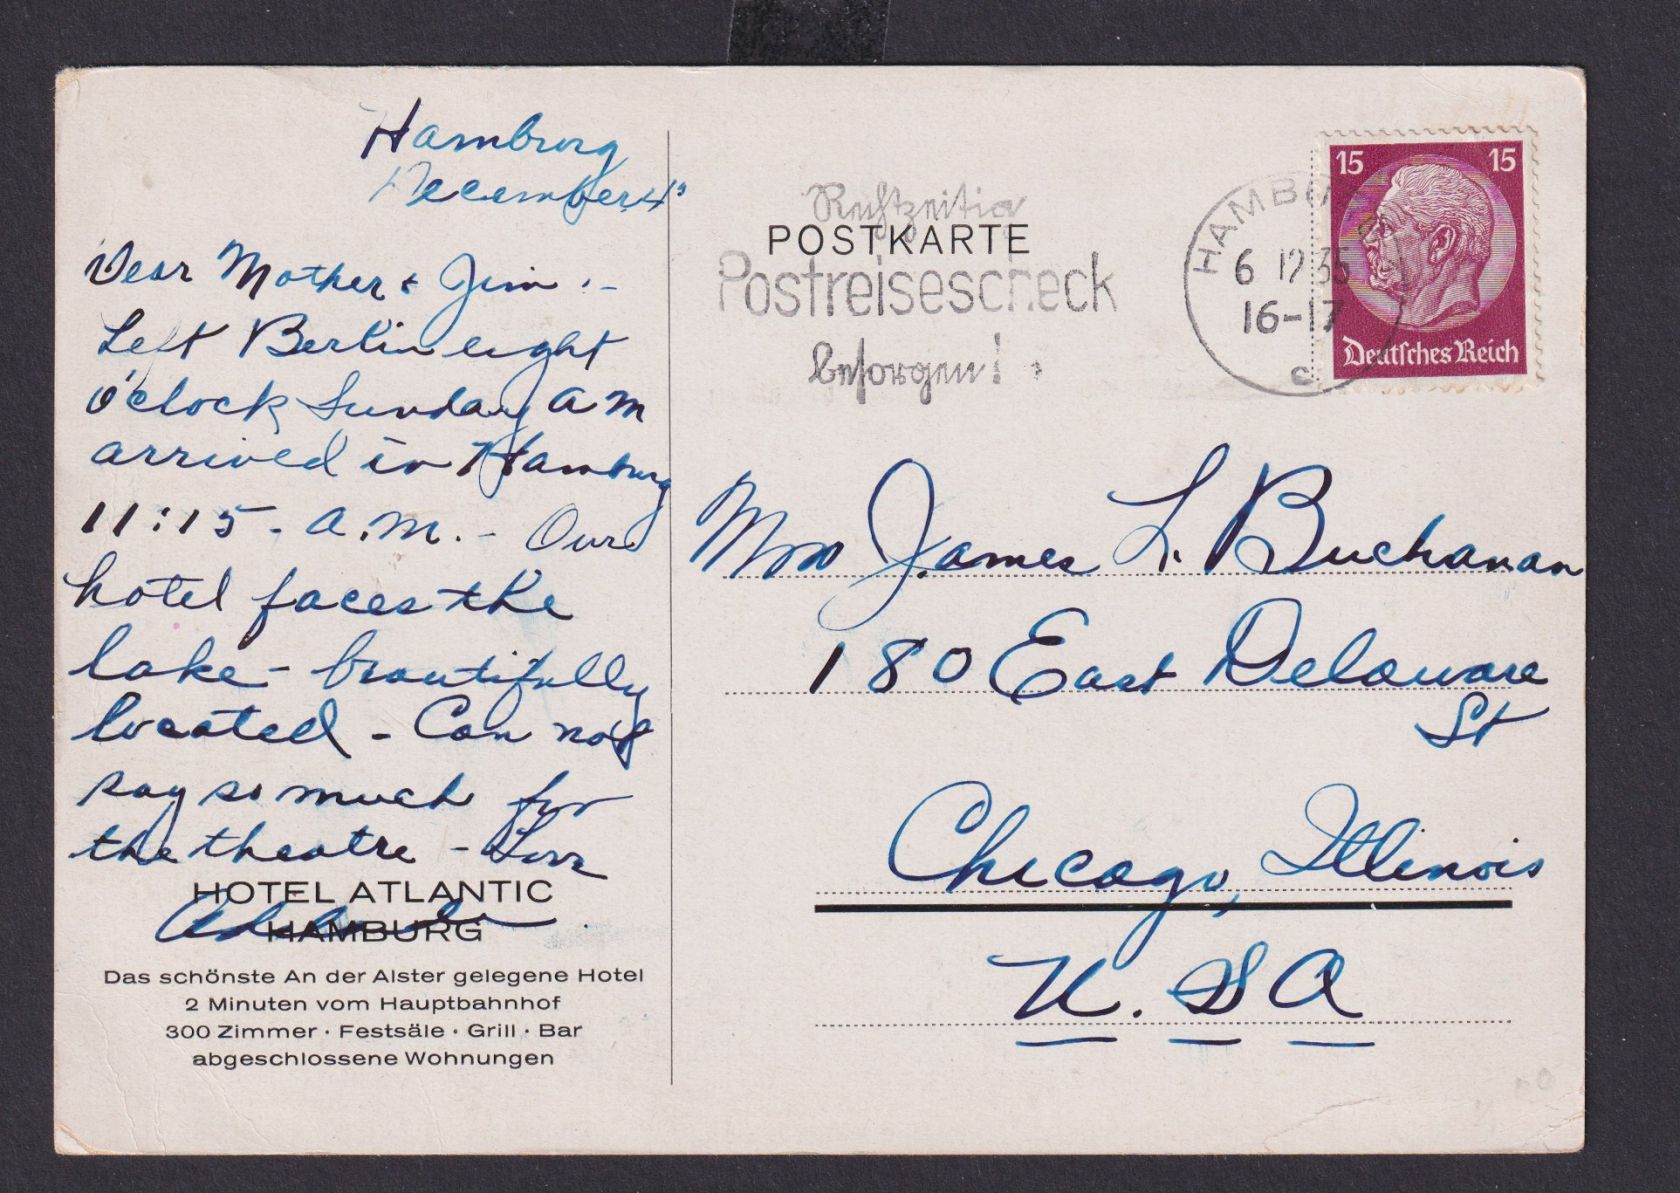 Hamburg
December 4
Dear Mother & Jim :-
Left Berlin eight
o'clock Sunday am
arrived in Hamburg
11:15 - a.m. - Our
hotel faces the
lake - beautifully
located - Can not
say so much for
the theatre - Love
HOTEL ATLANTIC
HAMBURG
Das schönste An der Alster gelegene Hotel
2 Minuten vom Hauptbahnhof
300 Zimmer · Festsäle · Grill · Bar
abgeschlossene Wohnungen
Rechtzeitig
POSTKARTE
Postreisescheck
besorgen!
HAMBURG
6 12 35
16-17
c
15 15
Deutsches Reich
Mrs James L. Buchanan
180 East Delaware
St
Chicago, Illinois
U.SA